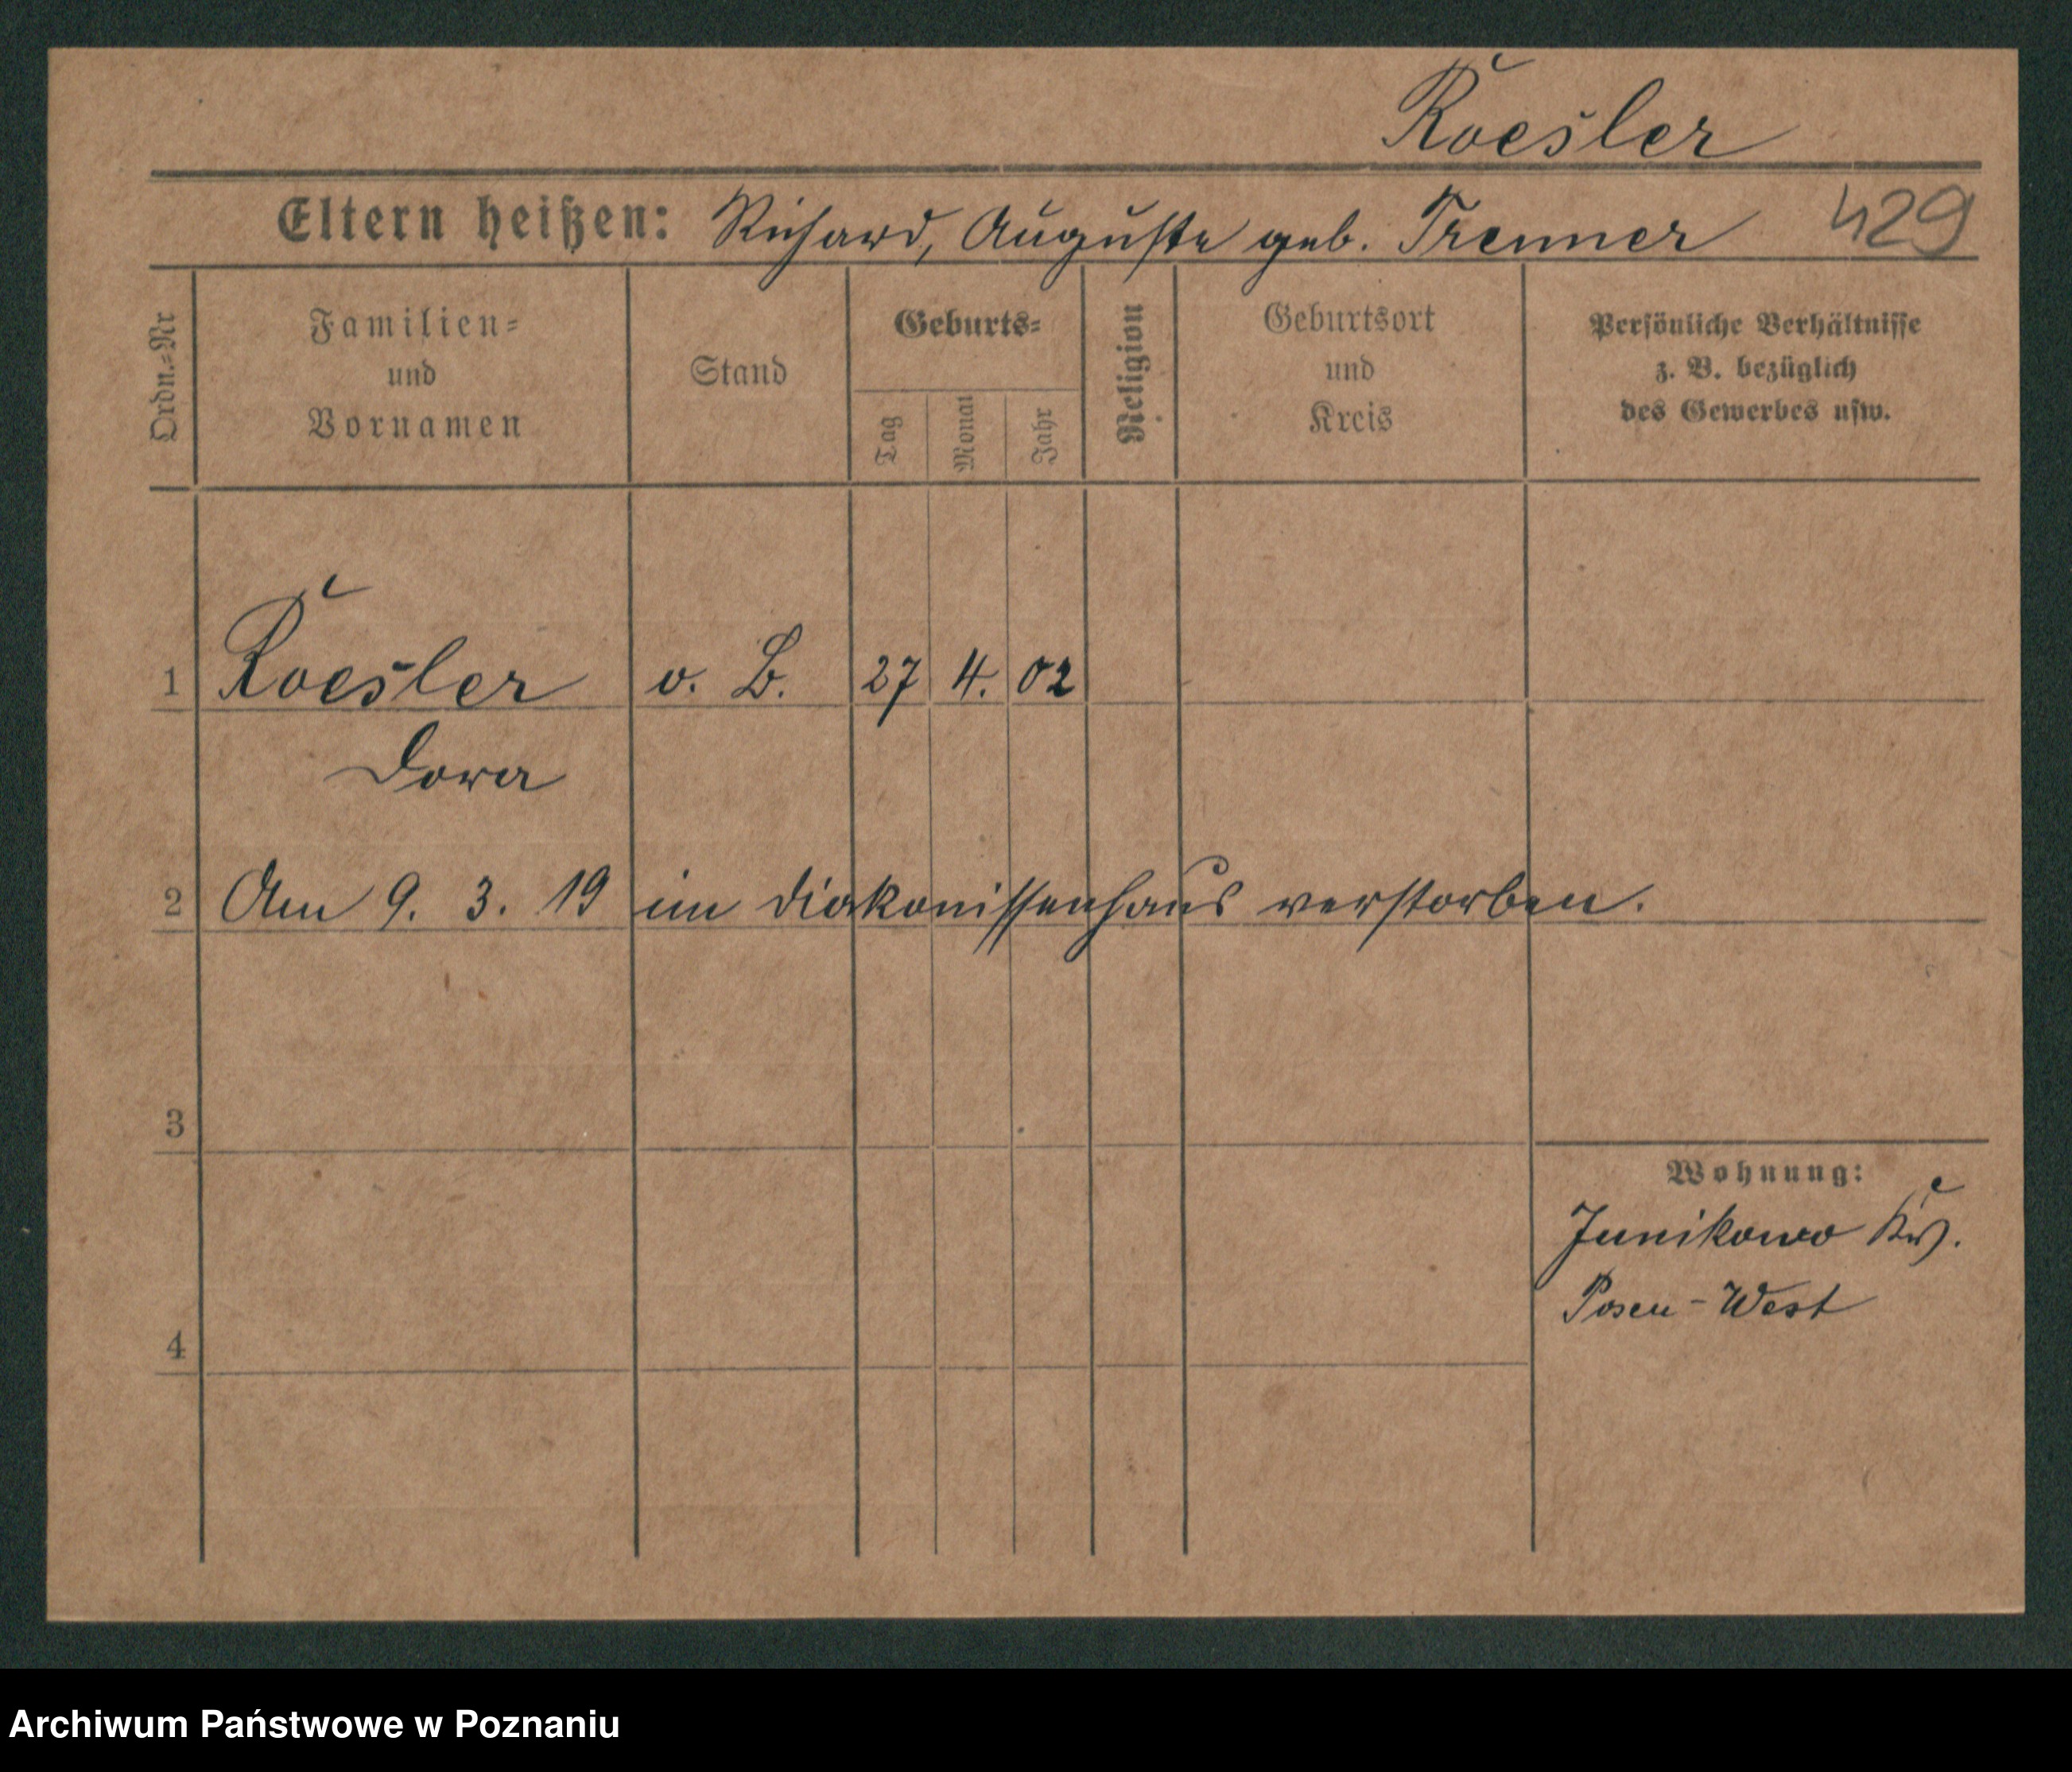 Roesler
Eltern heißen: Richard, Auguste geb. Trenner 429
Ordn.-Nr
Familien-
und
Vornamen
Stand
Geburts-
Tag
Monat
Jahr
Religion
Geburtsort
und
Kreis
Persönliche Verhältnisse
z. B. bezüglich
des Gewerbes usw.
1 Roesler o. B. 27 4. 02
Dora
2 Am 9. 3. 19 im Diakonissenhaus verstorben.
3
Wohnung:
Junikowo Kr.
Posen-West
4
Archiwum Państwowe w Poznaniu